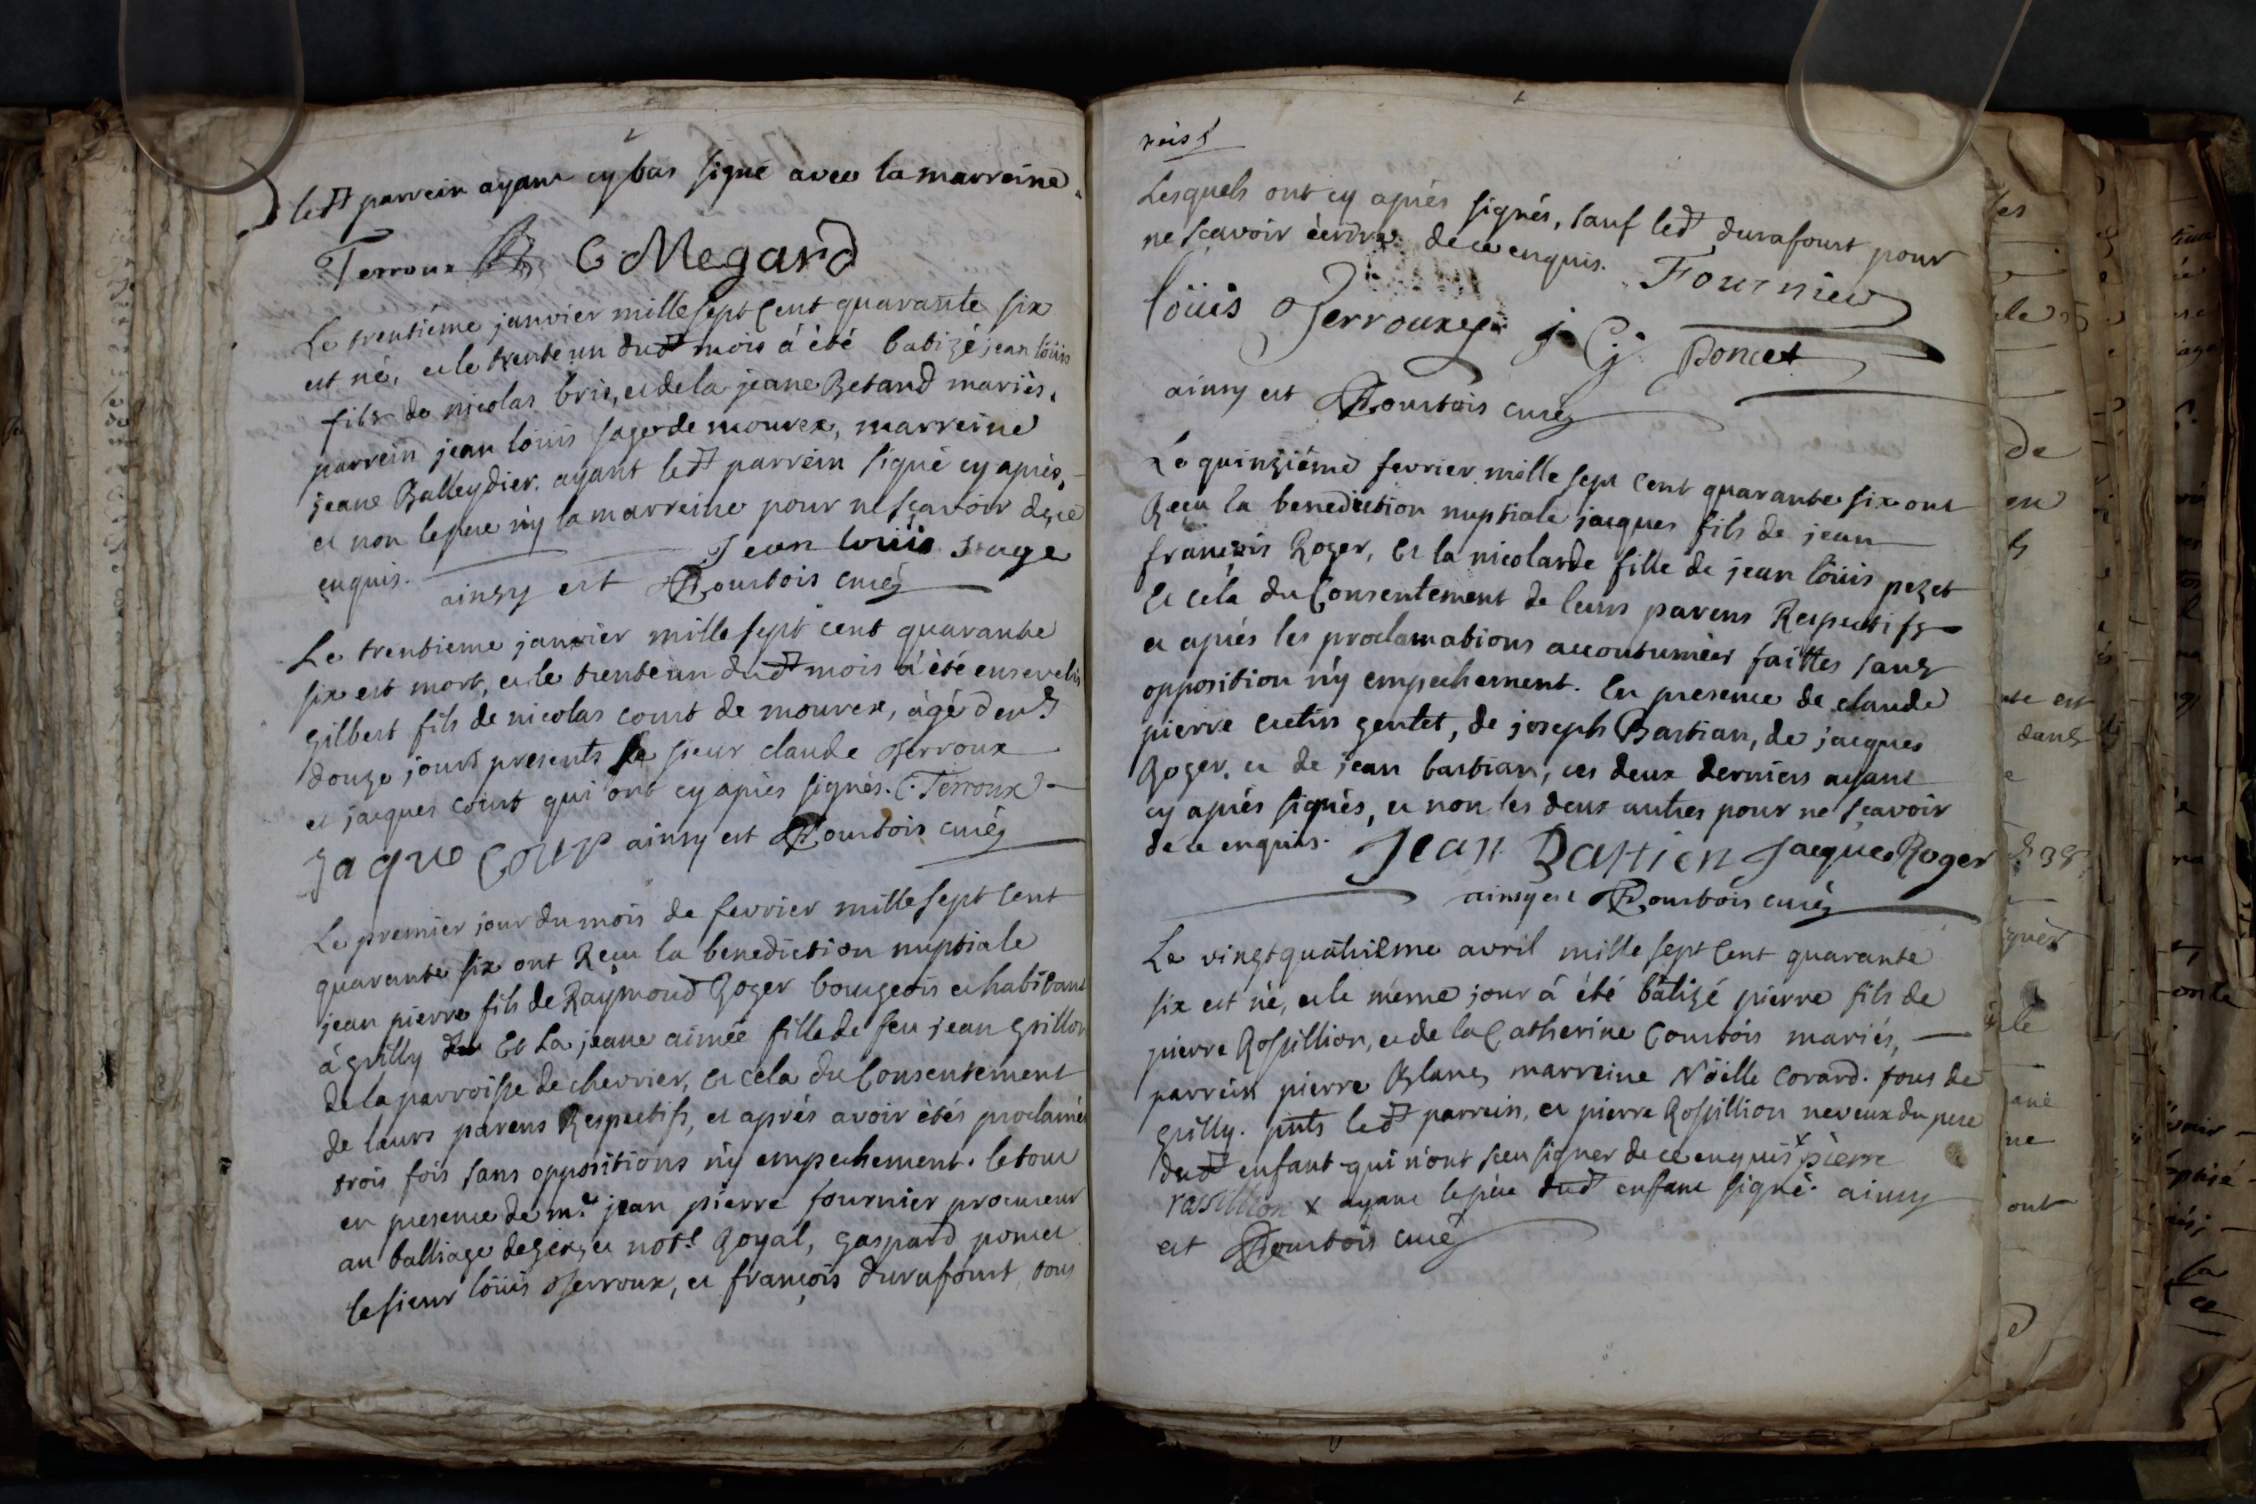 led.t parrein ayant cy bas signé avec la marreine.
Terroux C Megard
Le trentiéme janvier mille sept Cent quarante six
est né, et le trente un dud.t mois à été batizé jean loüis
fils de nicolas bris, et de la jeane Betand mariés,
parrein jean loüis sage de mourex, marreine
jeane Balleydier. ayant led.t parrein signé cy après,
et non le pere n'y la marreine pour ne sçavoir de ce
enquis. Jean louis sage
ainsy est Courtois curé
Le trentieme janvier mille sept cent quarante
six est mort, et le trente un dud.t mois à été enseveli
gilbert fils de nicolas court de mourex, àgé d'env.
douze jours presents le sieur claude Terroux
et jacques court qui ont cy après signés. C. Terroux
Jaque Court ainsy est Courtois curé
Le premier jour du mois de fevrier mille sept Cent
quarante six ont Reçu la benediction nuptiale
jean pierre fils de Raymond Roger bourgeois et habitant
à grilly Et La jeane aimée fille de feu jean grillon
de la parroisse de chevrier, et cela du Consentement
de leurs parens Respectifs, et aprés avoir étés proclamés
trois fois sans oppositions n'y empechement. le tout
en presence de m.e jean pierre fournier procureur
au balliage de gex, et not.e Royal, gaspard poncet
le sieur loüis Terroux, et françois durafourt tous
Lesquels ont cy aprés signés, sauf led.t durafourt pour
ne scavoir écrire de ce enquis. Fournier
loüis Terroux j G Poncet
ainsy est Courtois curé
Le quinziéme fevrier mille sept Cent quarante six ont
Reçu la benediction nuptiale jacques fils de jean
françois Roger, Et la nicolarde fille de jean loüis pezet
Et cela du Consentement de leurs parens Respectifs
et aprés les proclamations accoutumées faittes sans
opposition n'y empechement. En presence de claude
pierre cretin gentet, de joseph Bastian, de jacques
Roger, et de jean bastian, ces deux derniers ayant
cy aprés signés, et non les deux autres pour ne sçavoir
de ce enquis. Jean Bastien Jacques Roger
ainsy est Courtois curé
Le vingt quatriéme avril mille sept Cent quarante
six est né, et le méme jour à été bâtizé pierre fils de
pierre Rossillion, et de la Catherine Courtois mariés,
parrein pierre Blanc, marreine Nöelle Corard. tous de
grilly. pnts led.t parrein, et pierre Rossillion neveux du pere
dud.t enfant qui n'ont sceu signer de ce enquis x pierre
rosillion x ayant le pere dud.t enfant signé. ainsy
est Courtois curé